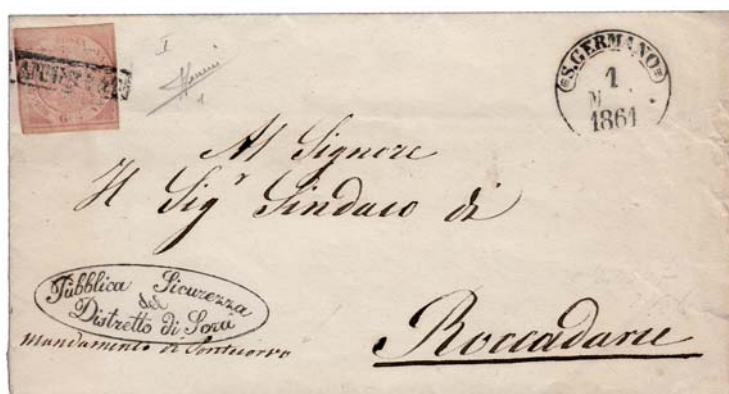 ANNULLATO
S. GERMANO
1
1861
Al Signore
Il Sigr Sindaco di
Pubblica Sicurezza
del
Distretto di Sora
Mandamento di Pontecorvo
Roccadarce